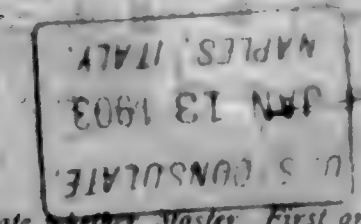 U. S. CONSULATE.
JAN 13 1903
NAPLES, ITALY.
Master First